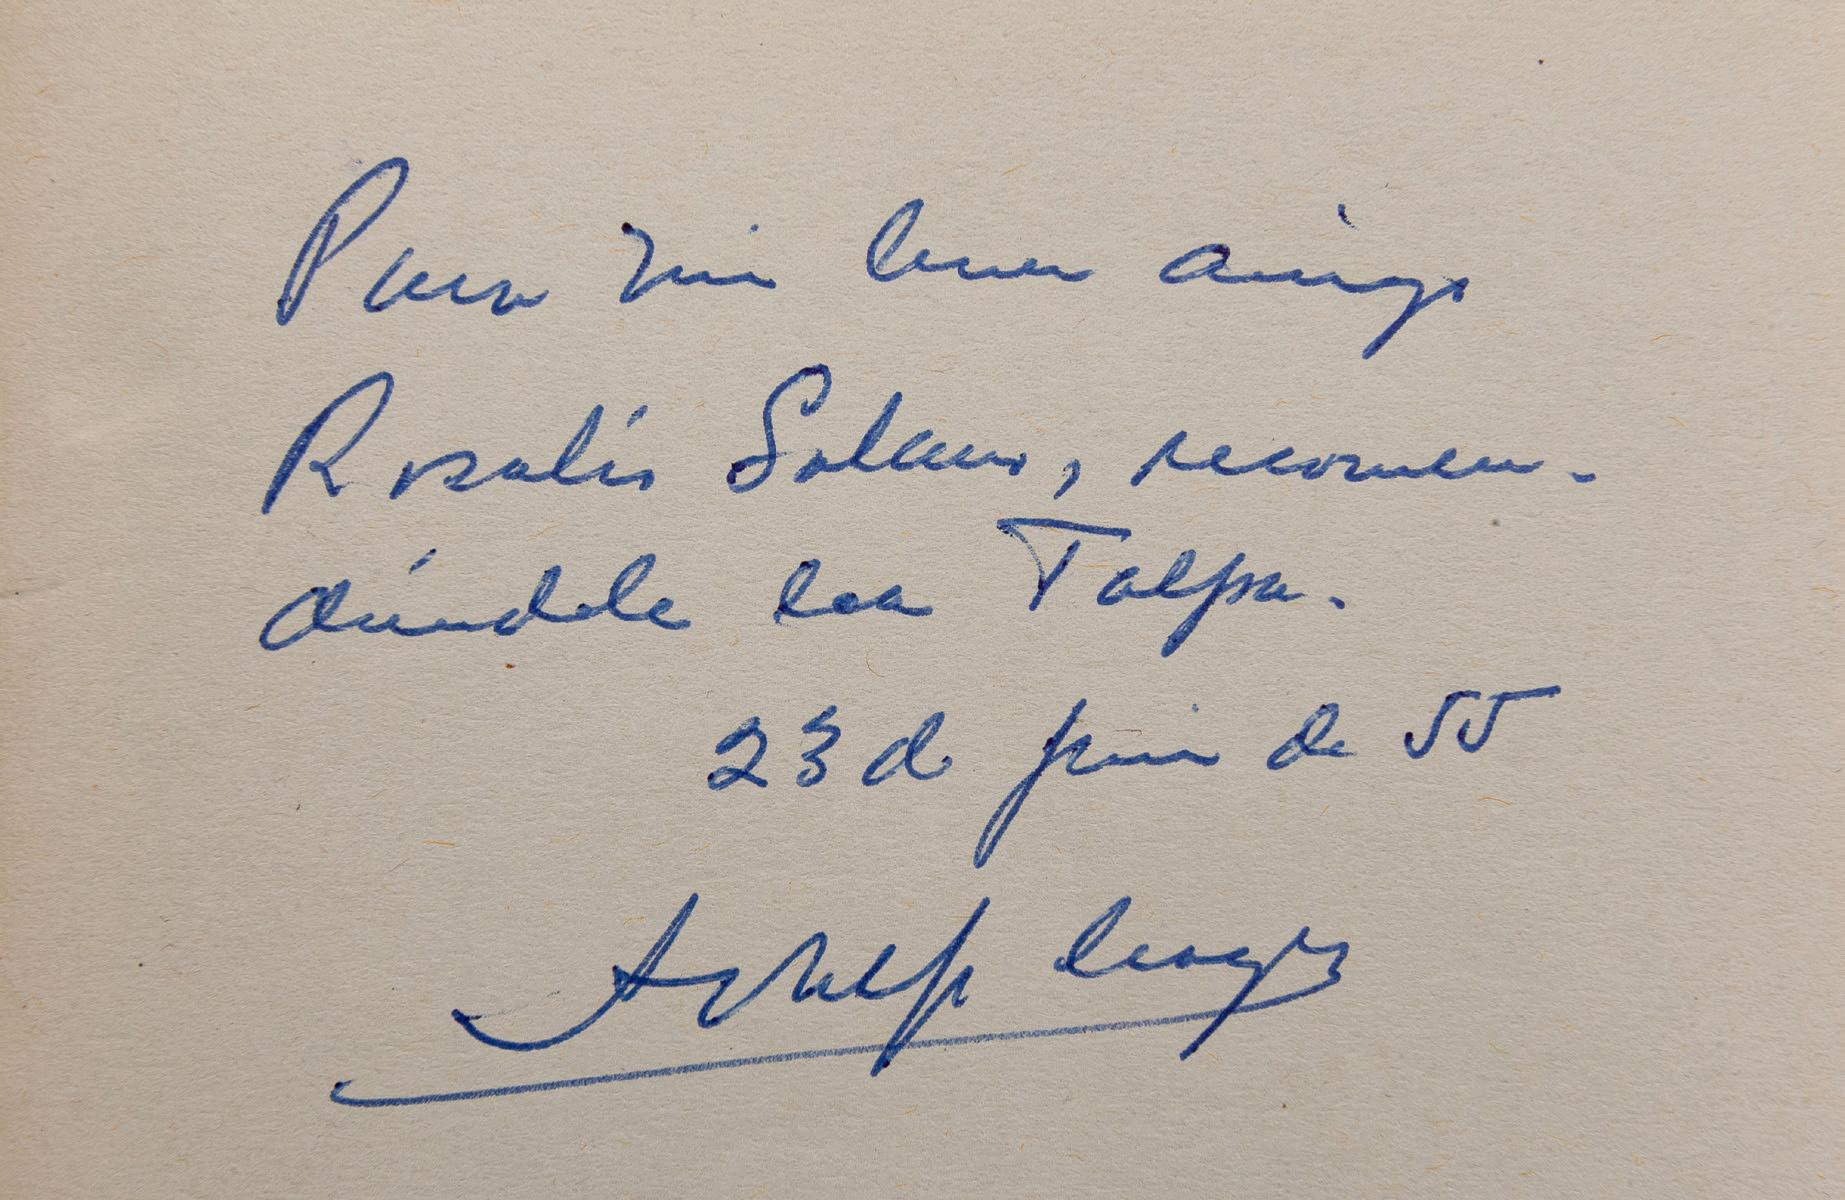 Para mi buen amigo
Rosalío Solano, recomen-
dándole lea Talpa.
23 de junio de 55
Adolfo